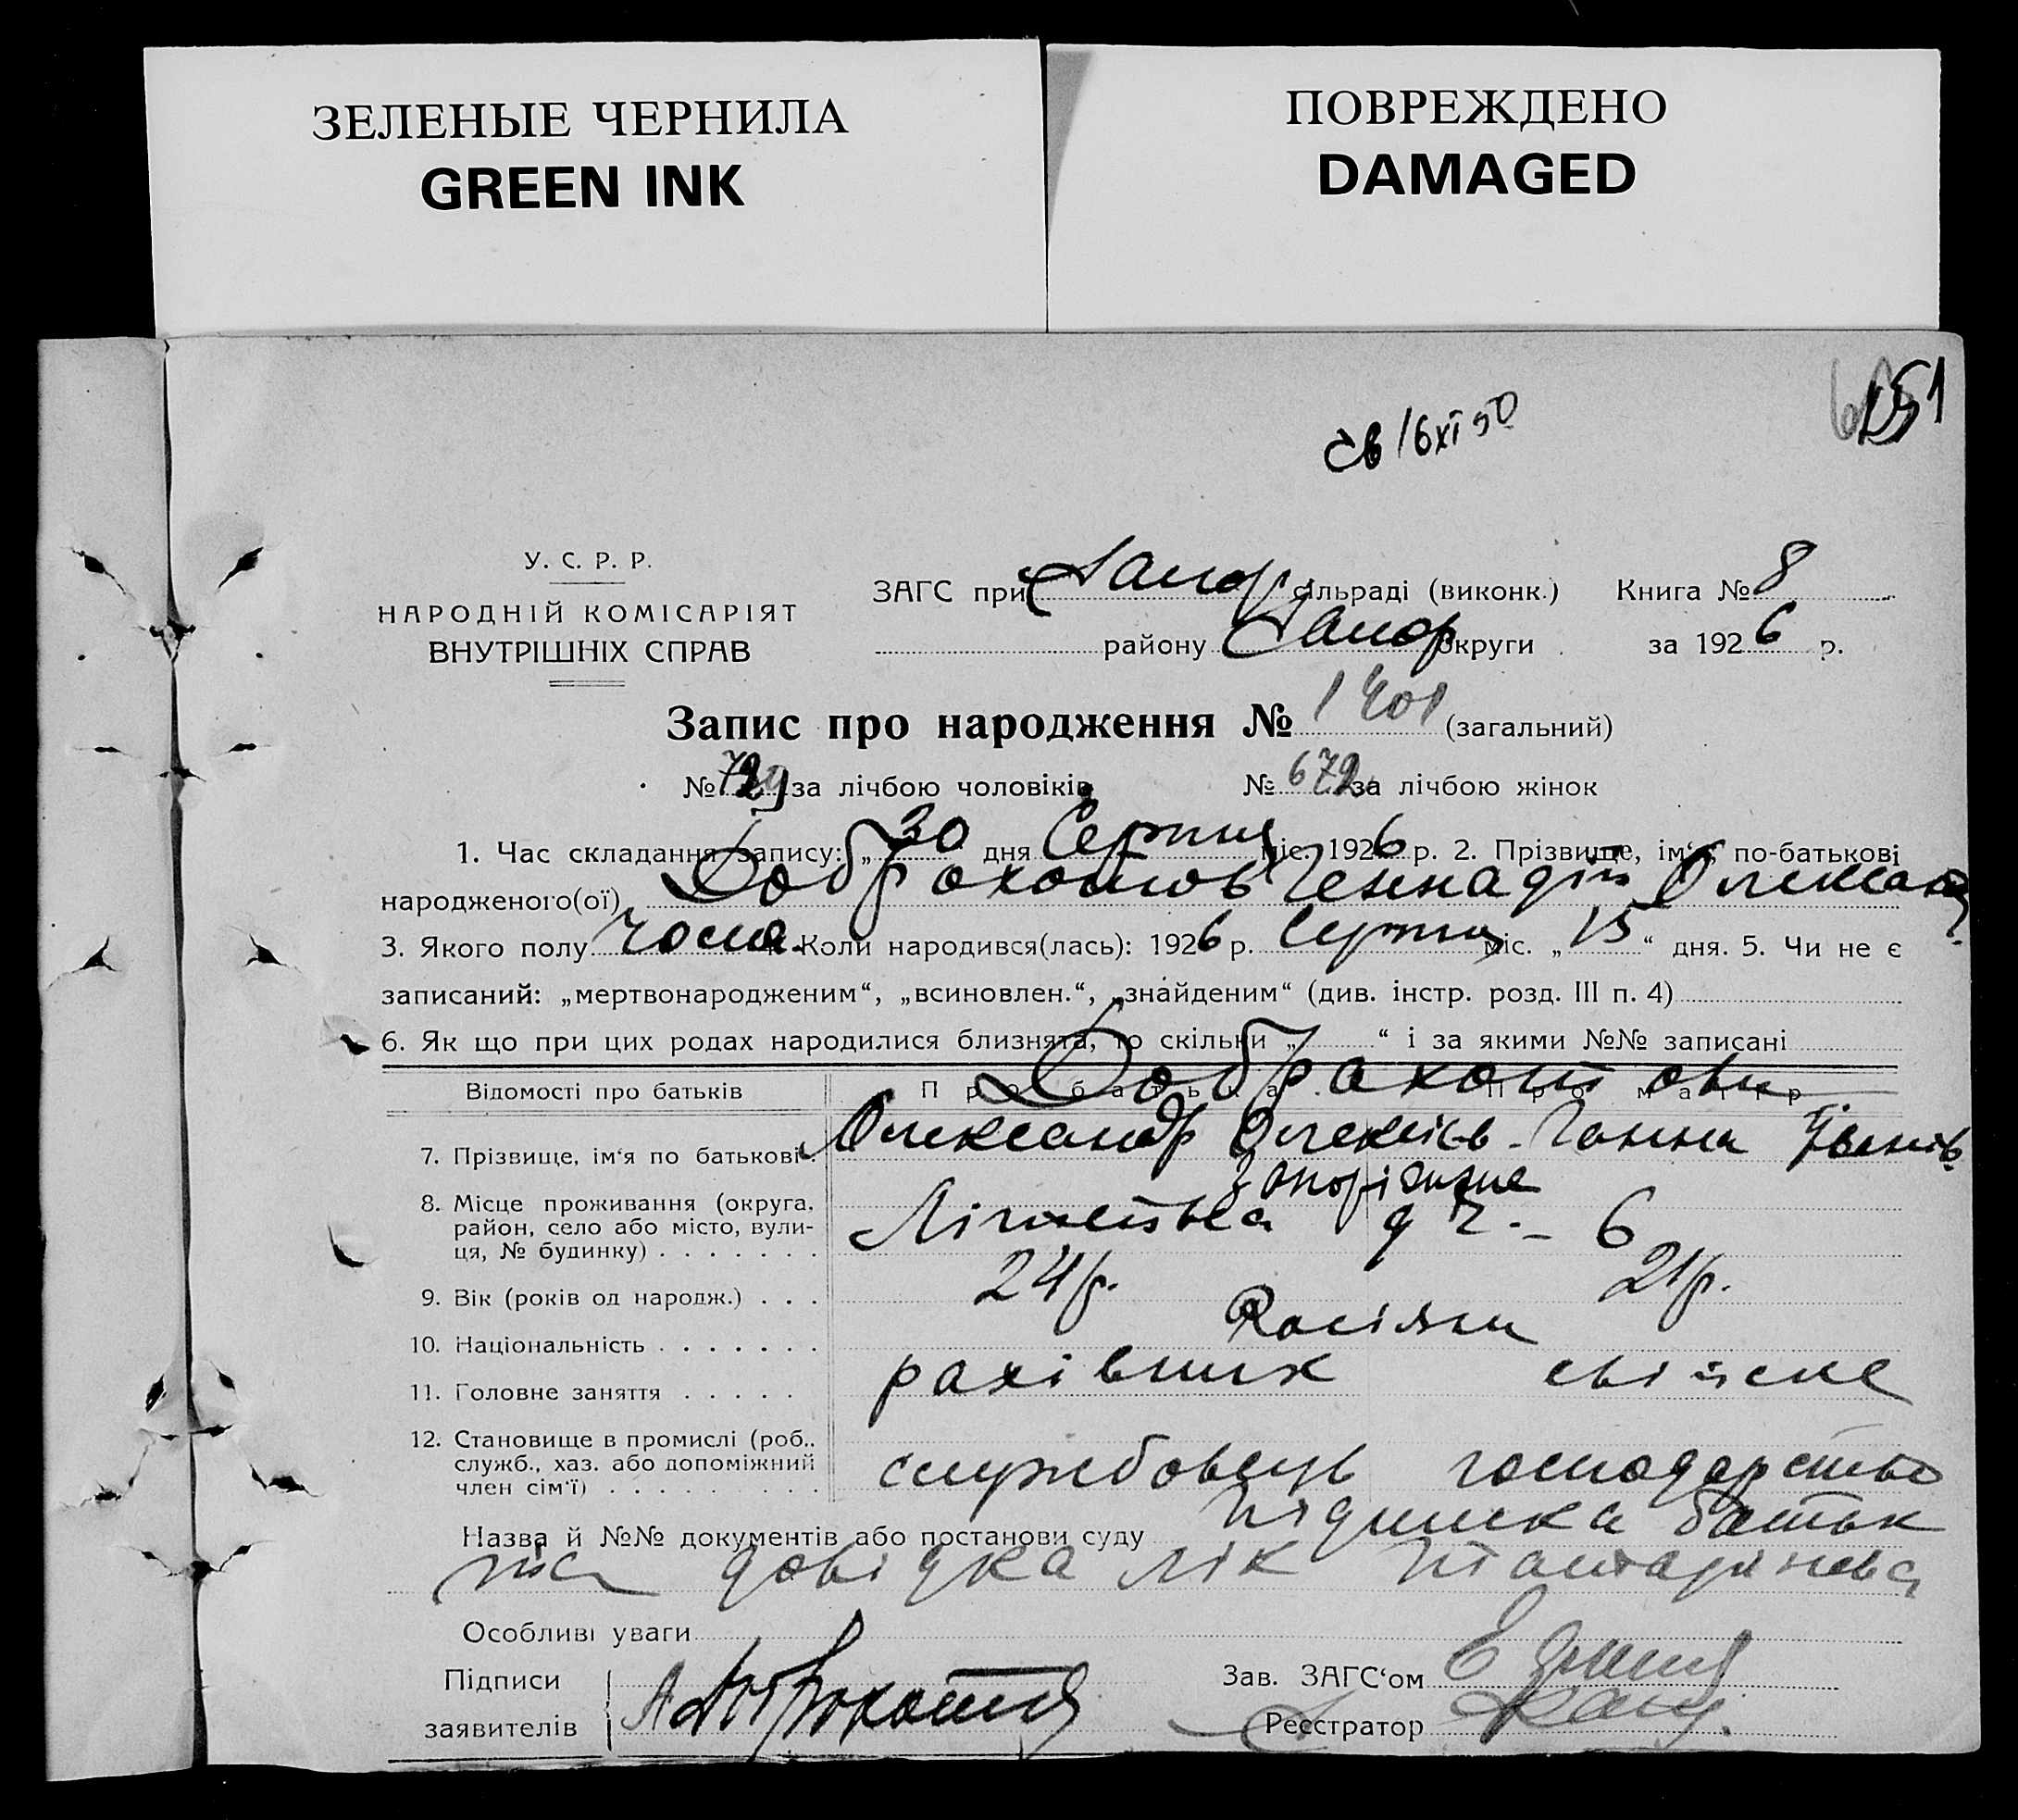 ЗЕЛЕНЫЕ ЧЕРНИЛА
GREEN INK
ПОВРЕЖДЕНО
DAMAGED
св 16 XI 50
У. С. Р. Р.
НАРОДНІЙ КОМІСАРІЯТ
ВНУТРІШНІХ СПРАВ
ЗАГС при Запор сільраді (виконк.) Книга № 8
району Запор округи за 1926 р.
Запис про народження № 1401 (загальний)
№ 729 за лічбою чоловіків № 672 за лічбою жінок
1. Час складання запису: „30 дня Серпня міс. 1926 р. 2. Прізвище, ім‘я, по-батькові
народженого(ої) Доброхотов Геннадій Олександ
3. Якого полу чол. 4. Коли народився(лась): 1926 р. Серпня міс. „15“ дня. 5. Чи не є
записаний: „мертвонародженим“, „всиновлен.“, „знайденим“ (див. інстр. розд. III п. 4)
6. Як що при цих родах народилися близнята, то скільки „ “ і за якими №№ записані
Відомості про батьків Про батька Про матір
Доброхотови
7. Прізвище, ім‘я по батькові Олександр Олексієв. Ганна Іванів
8. Місце проживання (округа, район, село або місто, вулиця, № будинку) Запоріжжя
9. Вік (років од народж.) 24 р. 21 р.
10. Національність Росіяни
11. Головне заняття рахівник свійське
12. Становище в промислі (роб., служб., хаз. або допоміжний член сім‘ї) службовець господарство
Назва й №№ документів або постанови суду підписка батьк
довідка лік
Особливі уваги
Підписи
заявителів А Доброхотов
Зав. ЗАГС‘ом
Реєстратор